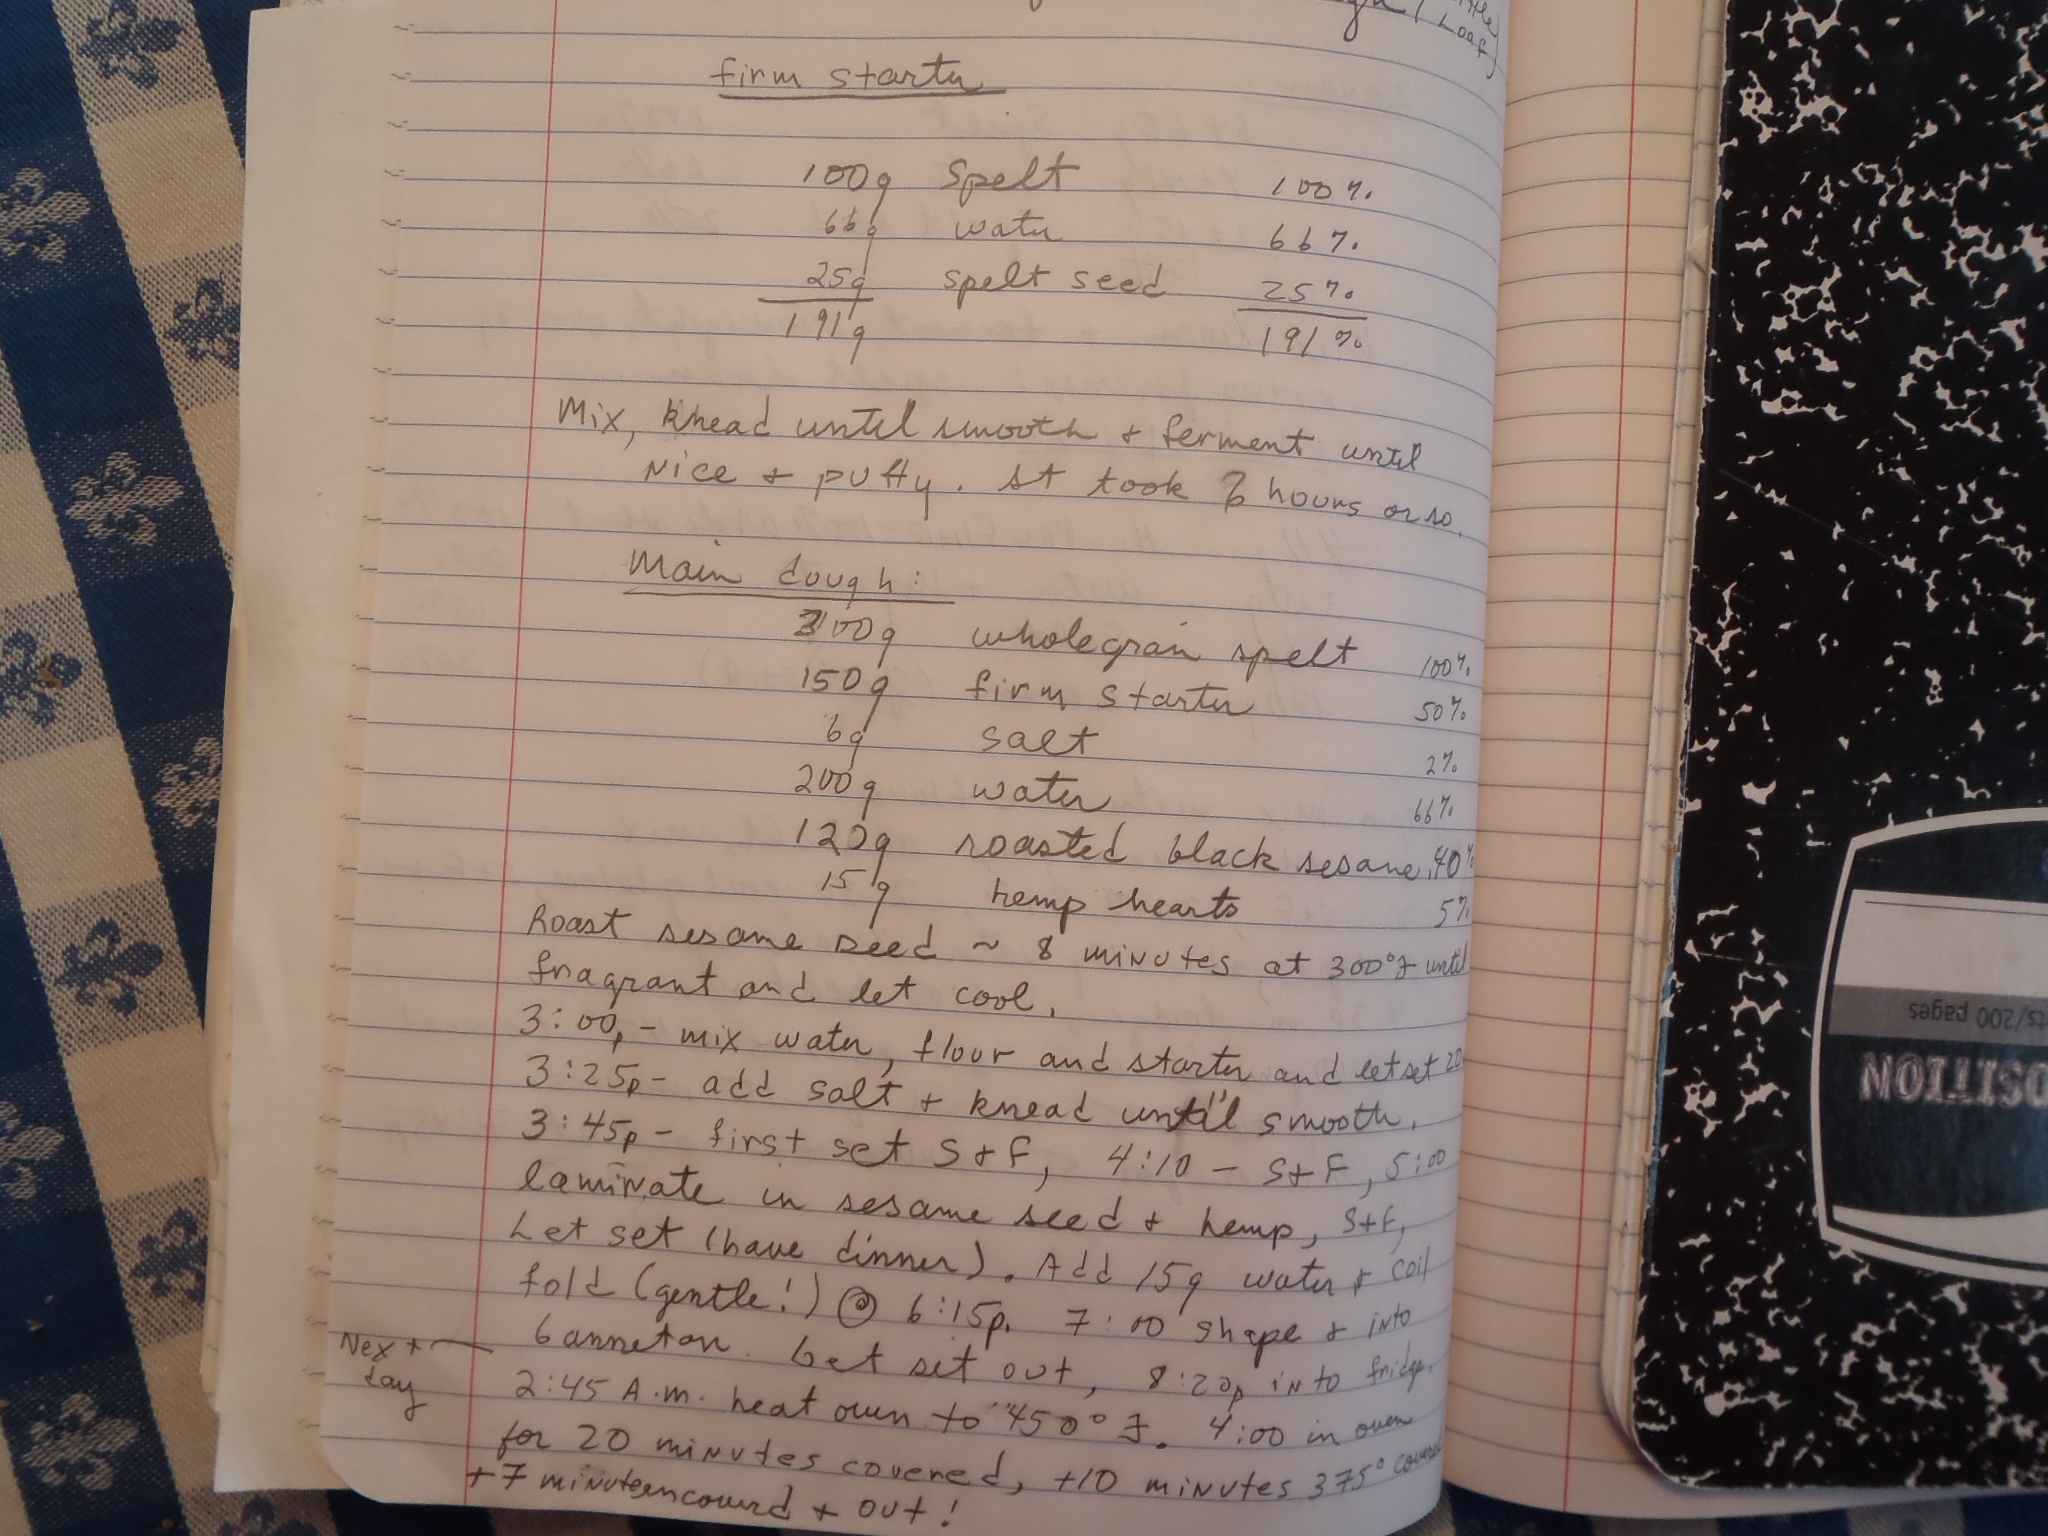 Loaf)
firm starter
100g spelt 100%
66g water 66%
25g spelt seed 25%
191g 191%
Mix, knead until smooth + ferment until
nice + puffy. It took hours or so.
Main dough:
300g wholegrain spelt 100%
150g firm starter 50%
6g salt 2%
200g water 66%
120g roasted black sesame, 40%
15g hemp hearts 5%
Roast sesame seed ~ 8 minutes at 300°F until
fragrant and let cool.
3:00p - mix water, flour and starter and let set 20
3:25p - add salt + knead until smooth.
3:45p - first set S+F, 4:10 - S+F, 5:00
laminate in sesame seed + hemp, S+F,
Let set (have dinner). Add 15g water + coil
fold (gentle!) @ 6:15p. 7:00 shape + into
banneton. Let set out, 8:20p into fridge.
Next day
2:45 A.m. heat oven to 450°F. 4:00 in oven
for 20 minutes covered, +10 minutes 375° covered
+7 minutes uncoverd + out!
ts/200 pages
OSITION